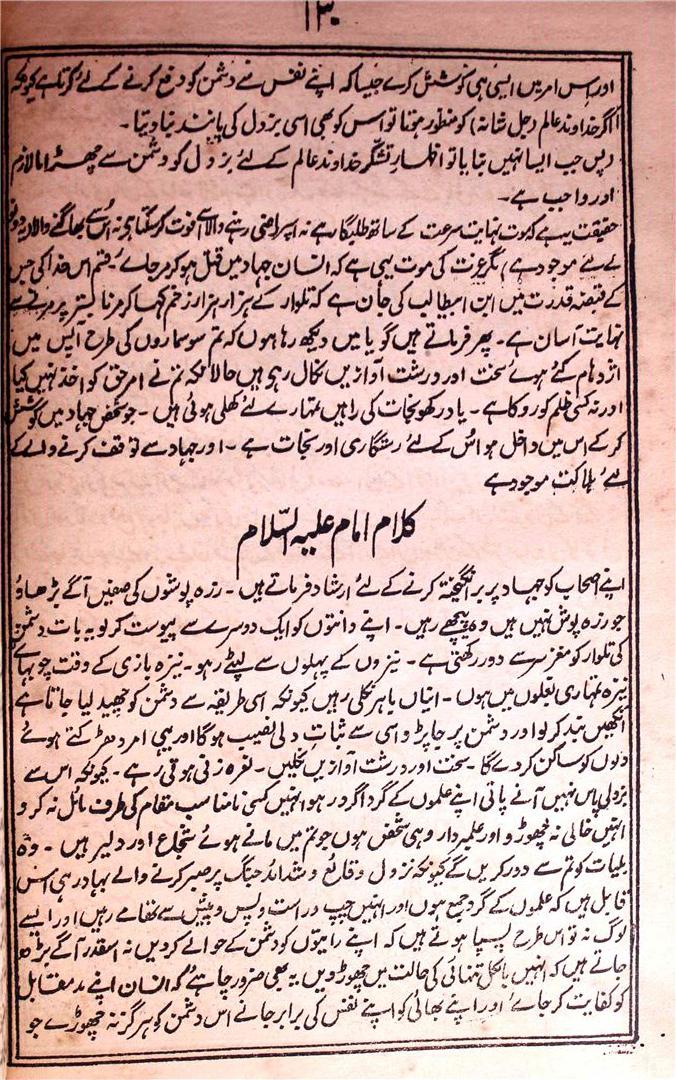 ۱۳۰
اور اس امر میں ایسی ہی کوشش کرے جیسا کہ اپنے نفس سے دشمن کو دفع کرنے کے لئے کرتا ہے کیونکہ
اگر خداوند عالم (جل شانہ) کو منظور ہوتا تو اس کو بھی اسی بزدل کی مانند بنا دیتا۔
(پس جب ایسا نہیں بنایا تو اظہار تشکر خداوند عالم کے لئے بزدل کو دشمن سے چھڑانا لازم
اور واجب ہے۔
حقیقت یہ ہے کہ موت نہایت سرعت کے ساتھ طلبگار ہے نہ اسپر راضی رہنے والا اسے فوت کر سکتا ہے نہ اُس سے بھاگنے والا (یہ دونوں
کے لئے موجود ہے) مگر عزت کی موت یہی ہے کہ انسان جہاد میں قتل ہو کر مر جائے قسم اس خدا کی جس
کے قبضہ قدرت میں ابن ابیطالب کی جان ہے کہ تلوار کے ہزار ہزار زخم کھا کر مرنا بستر پر مرنے سے
نہایت آسان ہے۔ پھر فرماتے ہیں گویا میں دیکھ رہا ہوں کہ تم سوسماروں کی طرح آپس میں
اژدہام کئے ہوئے سخت اور درشت آوازیں نکال رہی ہیں حالانکہ تم نے امر حق کو اخذ نہیں کیا
اور نہ کسی ظلم کو روکا ہے۔ یاد رکھو نجات کی راہیں تمہارے لئے کھلی ہوئی ہیں۔ جو شخص جہاد میں کوشش
کر کے اس میں داخل ہو اُس کے لئے رستگاری اور نجات ہے۔ اور جہاد سے توقف کرنے والے کے
لئے ہلاکت موجود ہے
کلام امام علیہ السّلام
اپنے اصحاب کو جہاد پر برانگیختہ کرنے کے لئے ارشاد فرماتے ہیں۔ زرہ پوشوں کی صفیں آگے بڑھاؤ
جو زرہ پوش نہیں ہیں وہ پیچھے رہیں۔ اپنے دانتوں کو ایک دوسرے سے پیوست کر لو یہ بات دشمن
کی تلوار کو مغز سر سے دور رکھتی ہے۔ نیزوں کے پہلوں سے لپٹے رہو۔ نیزہ بازی کے وقت چوبہائے
نیزہ تمہاری بغلوں میں ہوں۔ انیاں باہر نکلی رہیں کیونکہ اسی طریقہ سے دشمن کو چھید لیا جاتا ہے
آنکھیں بند کر لو اور دشمن پر جا پڑو اسی سے ثبات دلی نصیب ہوگا اور یہی امر دھڑکتے ہوئے
دلوں کو ساکن کر دے گا۔ سخت اور درشت آوازیں نکلیں۔ نعرہ زنی ہوتی رہے۔ کیونکہ اس سے
بزدلی پاس نہیں آنے پاتی اپنے علموں کے گرد اگر در ہو انہیں کسی نامناسب مقام کی طرف مائل نہ کرو
انہیں خالی نہ چھوڑو اور علمدار وہی شخص ہوں جو تم میں مانے ہوئے شجاع اور دلیر ہیں۔ وہ
بلیات کو تم سے دور کریں گے کیونکہ نزول وقائع و شدائد جنگ پر صبر کرنے والے بہادر ہی اس
قابل ہیں کہ علموں کے گرد جمع ہوں اور انہیں چپ و راست و پس و پیش سے تھامے رہیں اور ایسے
لوگ نہ تو اس طرح پسپا ہوتے ہیں کہ اپنے رایتوں کو دشمن کے حوالے کر دیں نہ اسقدر آگے بڑھ
جاتے ہیں کہ انہیں بالکل تنہائی کی حالت میں چھوڑ دیں یہ بھی ضرور چاہئے کہ انسان اپنے مد مقابل
کو کفایت کر جائے اور اپنے بھائی کو اپنے نفس کی برابر جانے اس دشمن کو ہرگز نہ چھوڑے جو